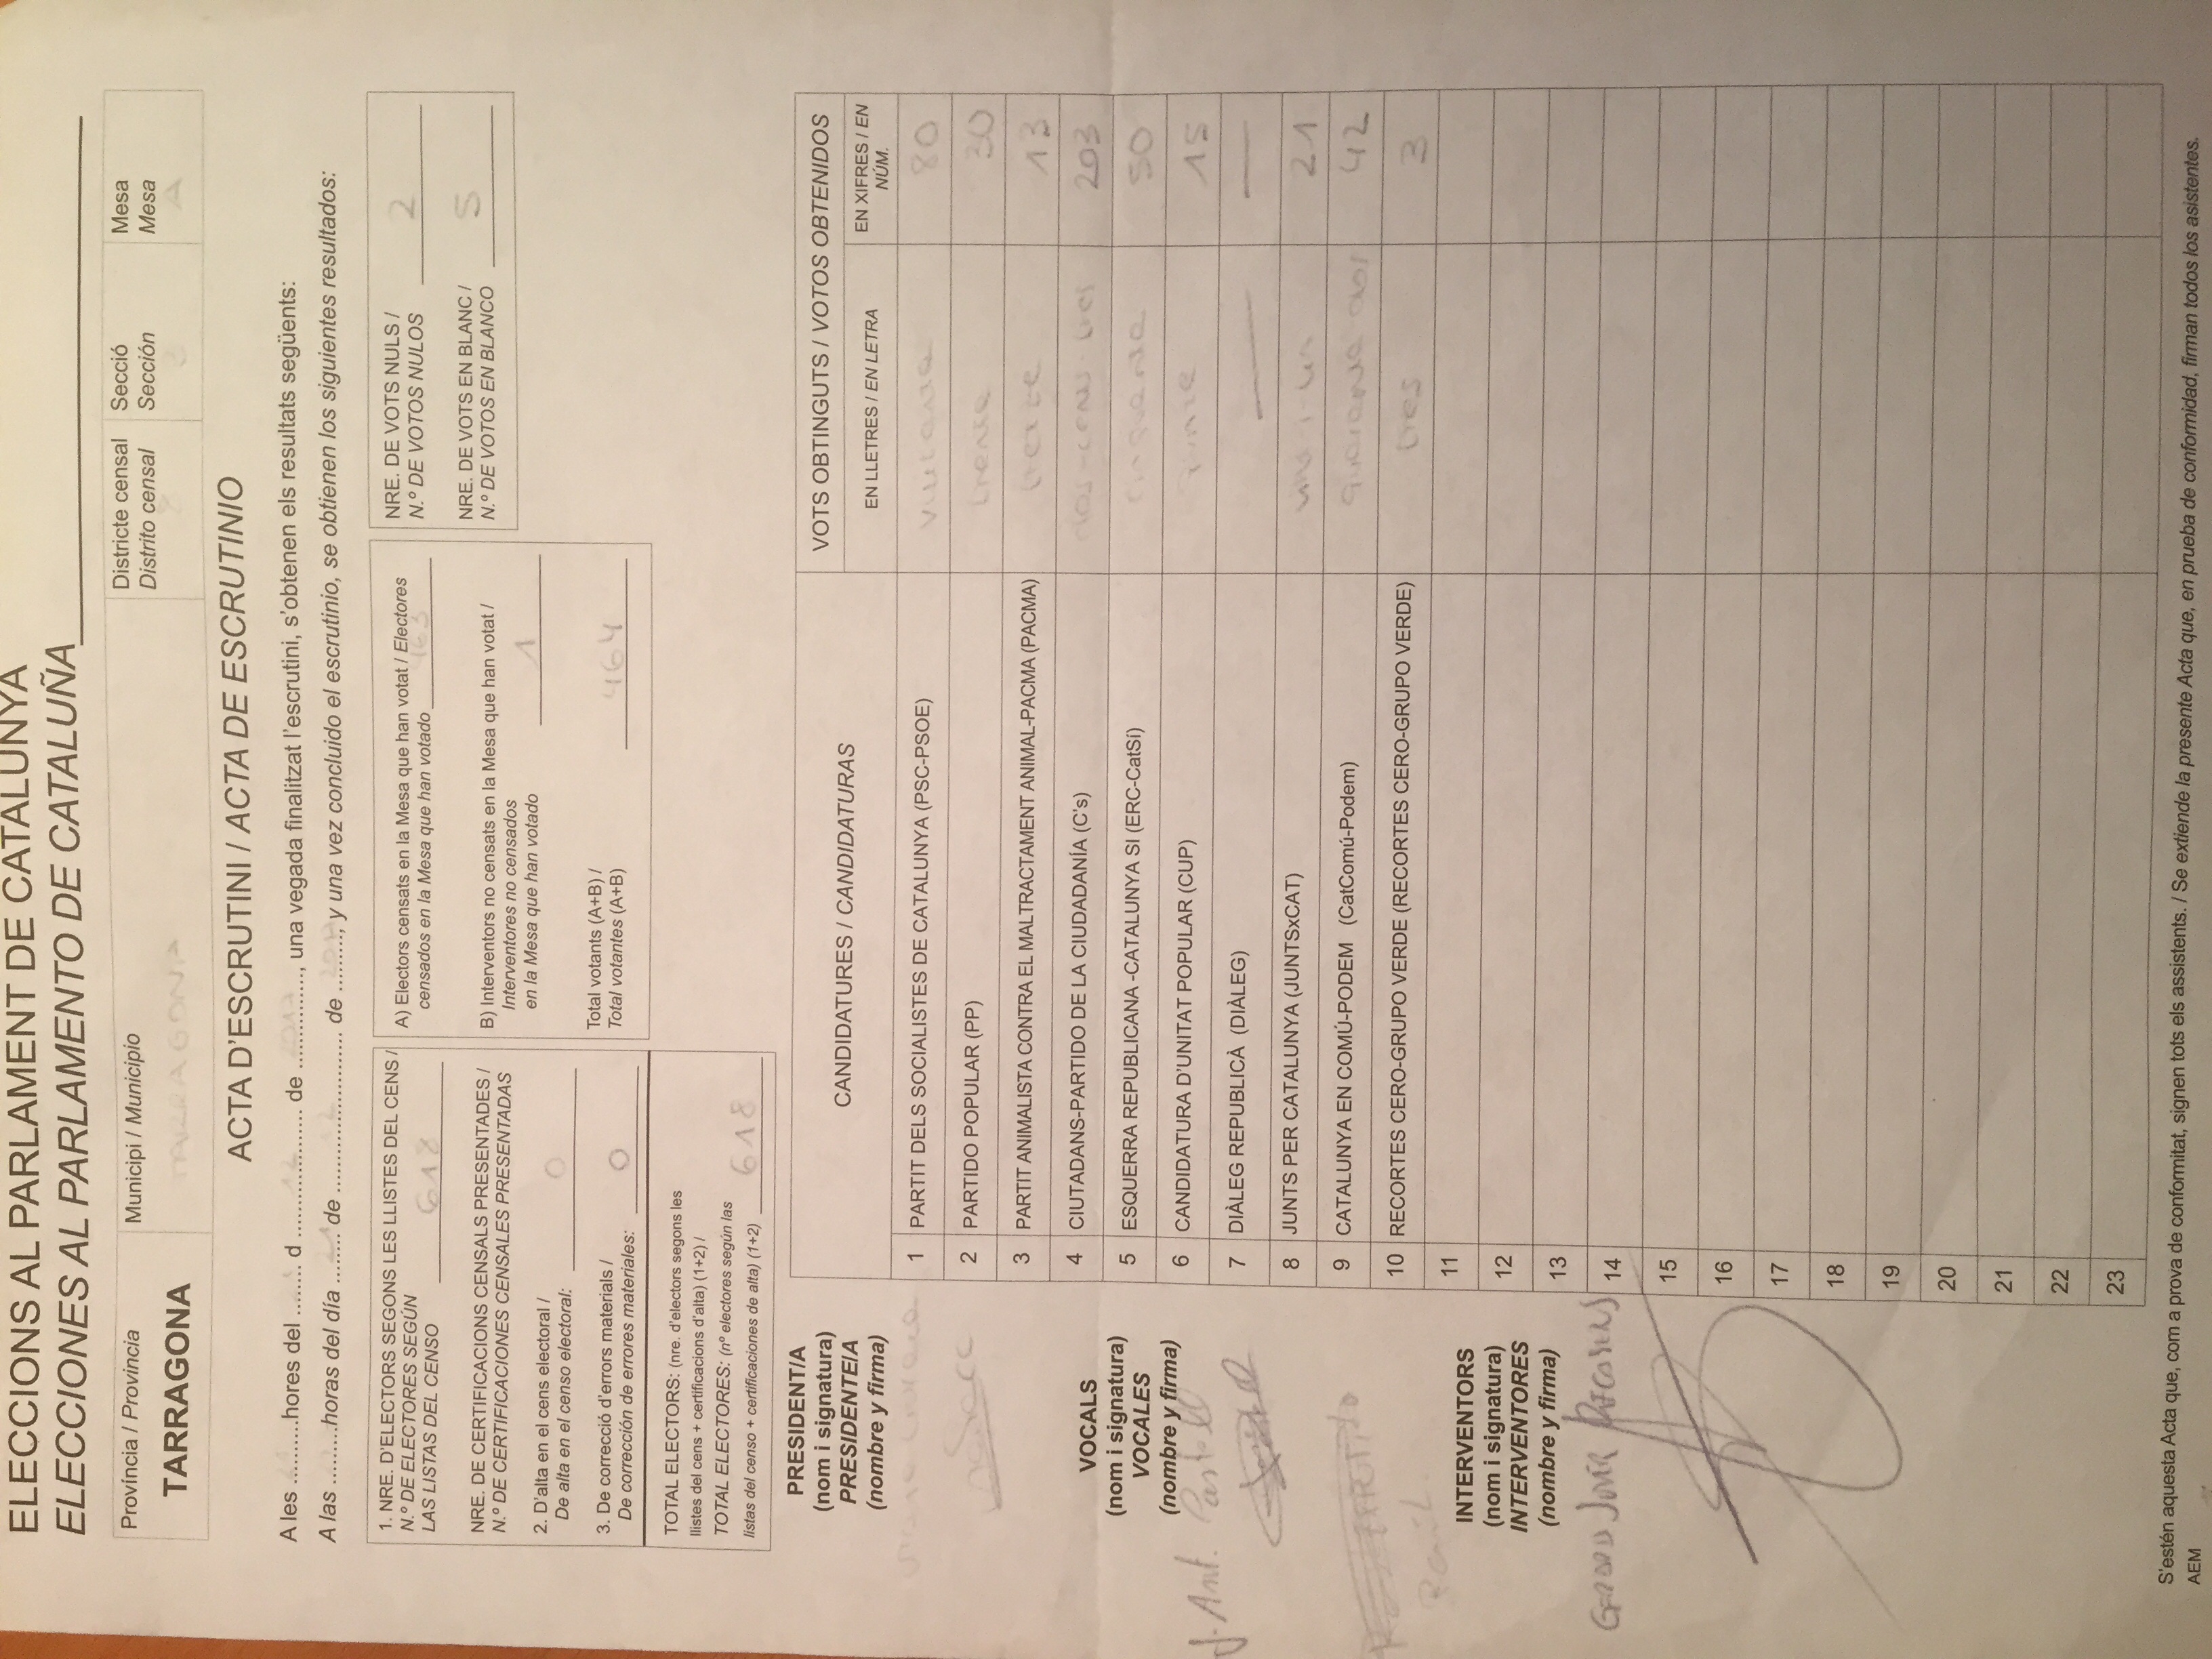 ELECCIONS AL PARLAMENT DE CATALUNYA
ELECCIONES AL PARLAMENTO DE CATALUÑA
Província / Provincia
TARRAGONA
Municipi / Municipio
TARRAGONA
Districte censal
Distrito censal
8
Secció
Sección
3
Mesa
Mesa
A
ACTA D'ESCRUTINI / ACTA DE ESCRUTINIO
A les .........hores del ....... d 12 de 2017, una vegada finalitzat l'escrutini, s'obtenen els resultats següents:
A las .........horas del día 21 de 12 de 2017, y una vez concluido el escrutinio, se obtienen los siguientes resultados:
1. NRE. D'ELECTORS SEGONS LES LLISTES DEL CENS /
N.º DE ELECTORES SEGÚN
LAS LISTAS DEL CENSO 618
NRE. DE CERTIFICACIONS CENSALS PRESENTADES /
N.º DE CERTIFICACIONES CENSALES PRESENTADAS
2. D'alta en el cens electoral /
De alta en el censo electoral: 0
3. De correcció d'errors materials /
De corrección de errores materiales: 0
TOTAL ELECTORS: (nre. d'electors segons les
llistes del cens + certificacions d'alta) (1+2) /
TOTAL ELECTORES: (nº electores según las
listas del censo + certificaciones de alta) (1+2) 618
A) Electors censats en la Mesa que han votat / Electores
censados en la Mesa que han votado 463
B) Interventors no censats en la Mesa que han votat /
Interventores no censados
en la Mesa que han votado 1
Total votants (A+B) /
Total votantes (A+B) 464
NRE. DE VOTS NULS /
N.º DE VOTOS NULOS 2
NRE. DE VOTS EN BLANC /
N.º DE VOTOS EN BLANCO 5
PRESIDENT/A
(nom i signatura)
PRESIDENTE/A
(nombre y firma)
VOCALS
(nom i signatura)
VOCALES
(nombre y firma)
J. Ant. Castell
Raúl.
INTERVENTORS
(nom i signatura)
INTERVENTORES
(nombre y firma)
CANDIDATURES / CANDIDATURAS
VOTS OBTINGUTS / VOTOS OBTENIDOS
EN LLETRES / EN LETRA
EN XIFRES / EN NÚM.
1 PARTIT DELS SOCIALISTES DE CATALUNYA (PSC-PSOE) vuitanta 80
2 PARTIDO POPULAR (PP) trenta 30
3 PARTIT ANIMALISTA CONTRA EL MALTRACTAMENT ANIMAL-PACMA (PACMA) tretze 13
4 CIUTADANS-PARTIDO DE LA CIUDADANÍA (C's) dos-cents tres 203
5 ESQUERRA REPUBLICANA -CATALUNYA SI (ERC-CatSí) cinquanta 50
6 CANDIDATURA D'UNITAT POPULAR (CUP) quinze 15
7 DIÀLEG REPUBLICÀ (DIÀLEG) — —
8 JUNTS PER CATALUNYA (JUNTSxCAT) vint-i-un 21
9 CATALUNYA EN COMÚ-PODEM (CatComú-Podem) quaranta dos 42
10 RECORTES CERO-GRUPO VERDE (RECORTES CERO-GRUPO VERDE) tres 3
11
12
13
14
15
16
17
18
19
20
21
22
23
S'estén aquesta Acta que, com a prova de conformitat, signen tots els assistents. / Se extiende la presente Acta que, en prueba de conformidad, firman todos los asistentes.
AEM